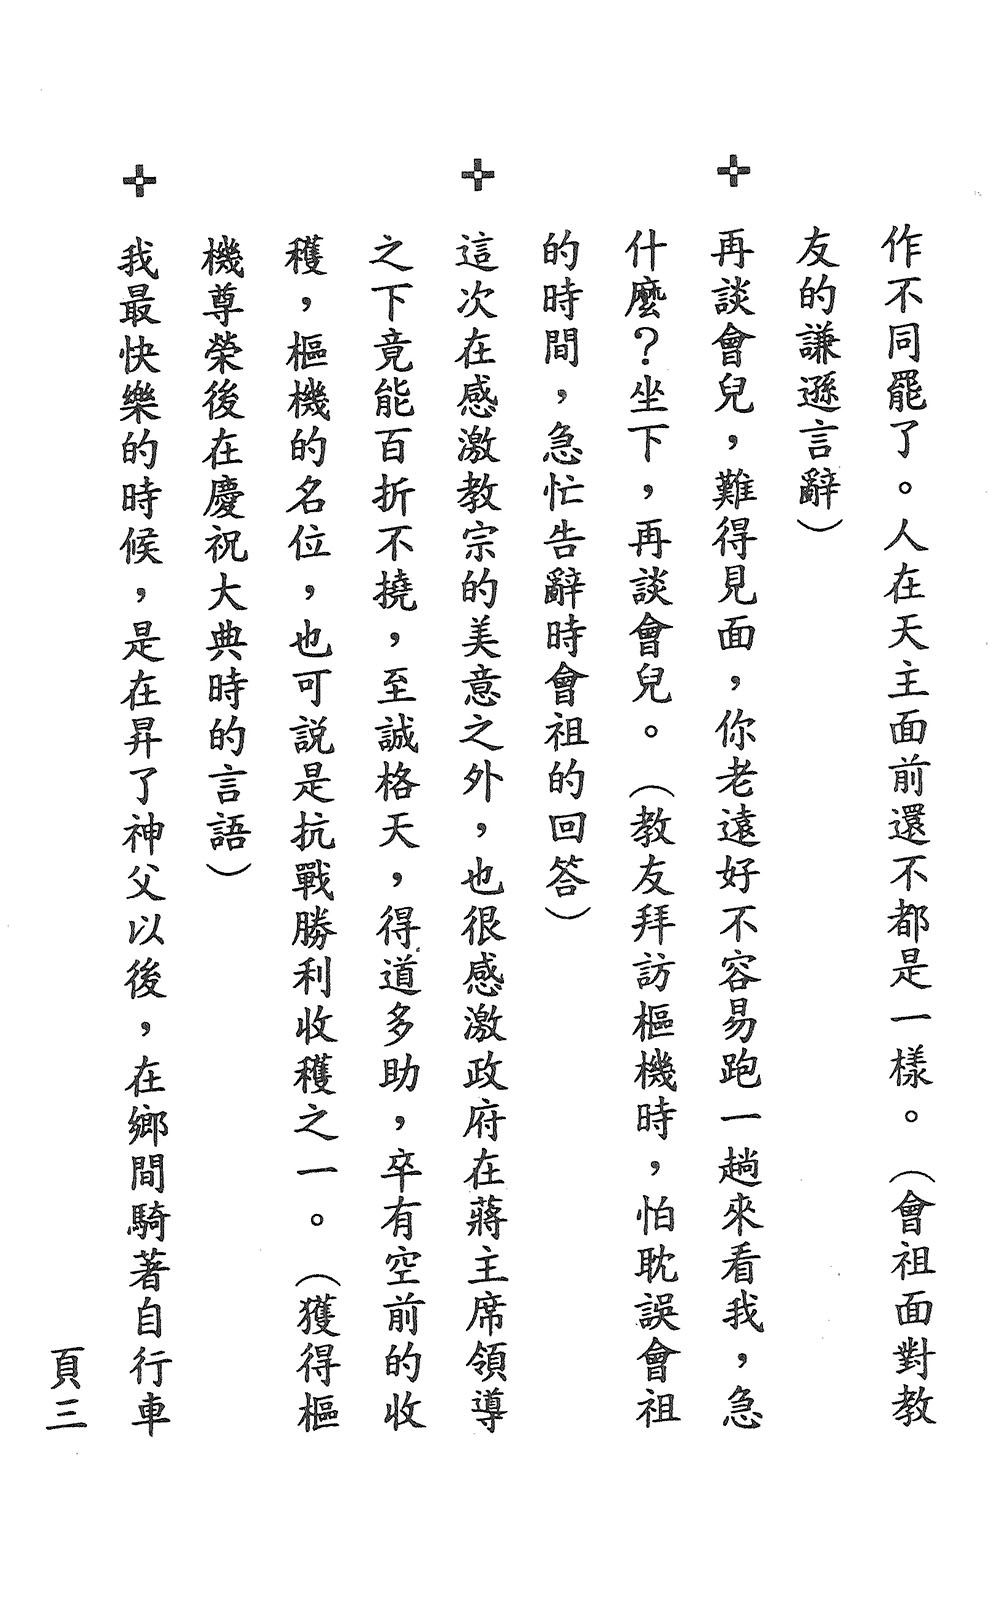 作不同罷了。人在天主面前還不都是一樣。（會祖面對教
友的謙遜言辭）
✢ 再談會兒，難得見面，你老遠好不容易跑一趟來看我，急
什麼？坐下，再談會兒。（教友拜訪樞機時，怕耽誤會祖
的時間，急忙告辭時會祖的回答）
✢ 這次在感激教宗的美意之外，也很感激政府在蔣主席領導
之下竟能百折不撓，至誠格天，得道多助，卒有空前的收
穫，樞機的名位，也可說是抗戰勝利收穫之一。（獲得樞
機尊榮後在慶祝大典時的言語）
✢ 我最快樂的時候，是在昇了神父以後，在鄉間騎著自行車
頁三